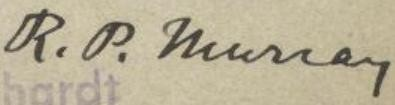 R. P. Murray
hardt